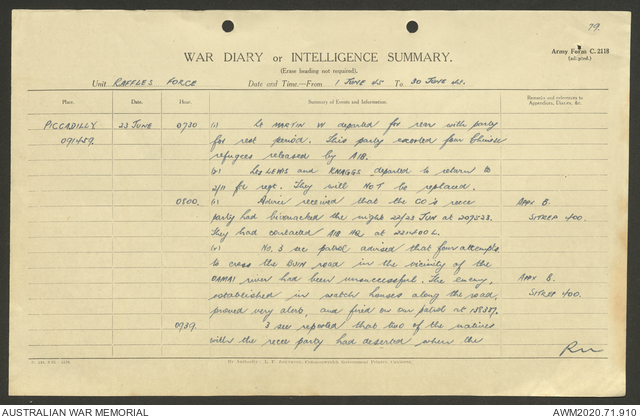 79.
WAR DIARY or INTELLIGENCE SUMMARY.
Army Form C. 2118
(adapted.)
(Erase heading not required).
Unit RAFFLES FORCE Date and Time.—From 1 JUNE 45 To 30 JUNE 45.
Place. Date. Hour. Summary of Events and Information. Remarks and references to
Appendices, Diaries, &c.
PICCADILLY 23 JUNE 0730 (i) Lt MARTIN W departed for rear with party
091459. for rest period. This party escorted four Chinese
refugees released by AIB.
(ii) Lts LEWIS and KNAGGS departed to return to
2/11 for regt. They will NOT be replaced.
0800. (i) Advice received that the CO's recce APPX B.
party had bivouacked the night 22/23 JUN at 207523. SITREP 400.
They had contacted AIB HQ at 221400L.
(ii) No. 3 sec patrol advised that four attempts
to cross the road in the vicinity of the
DAMAI river had been unsuccessful. The enemy, APPX B.
established in watch houses along the road, SITREP 400.
proved very alert, and fired on our patrol at 138387.
0739. 3 sec reported that two of the natives
with the recce party had deserted when the
By Authority: L. F. Johnston, Commonwealth Government Printer, Canberra.
AUSTRALIAN WAR MEMORIAL
AWM2020.71.910